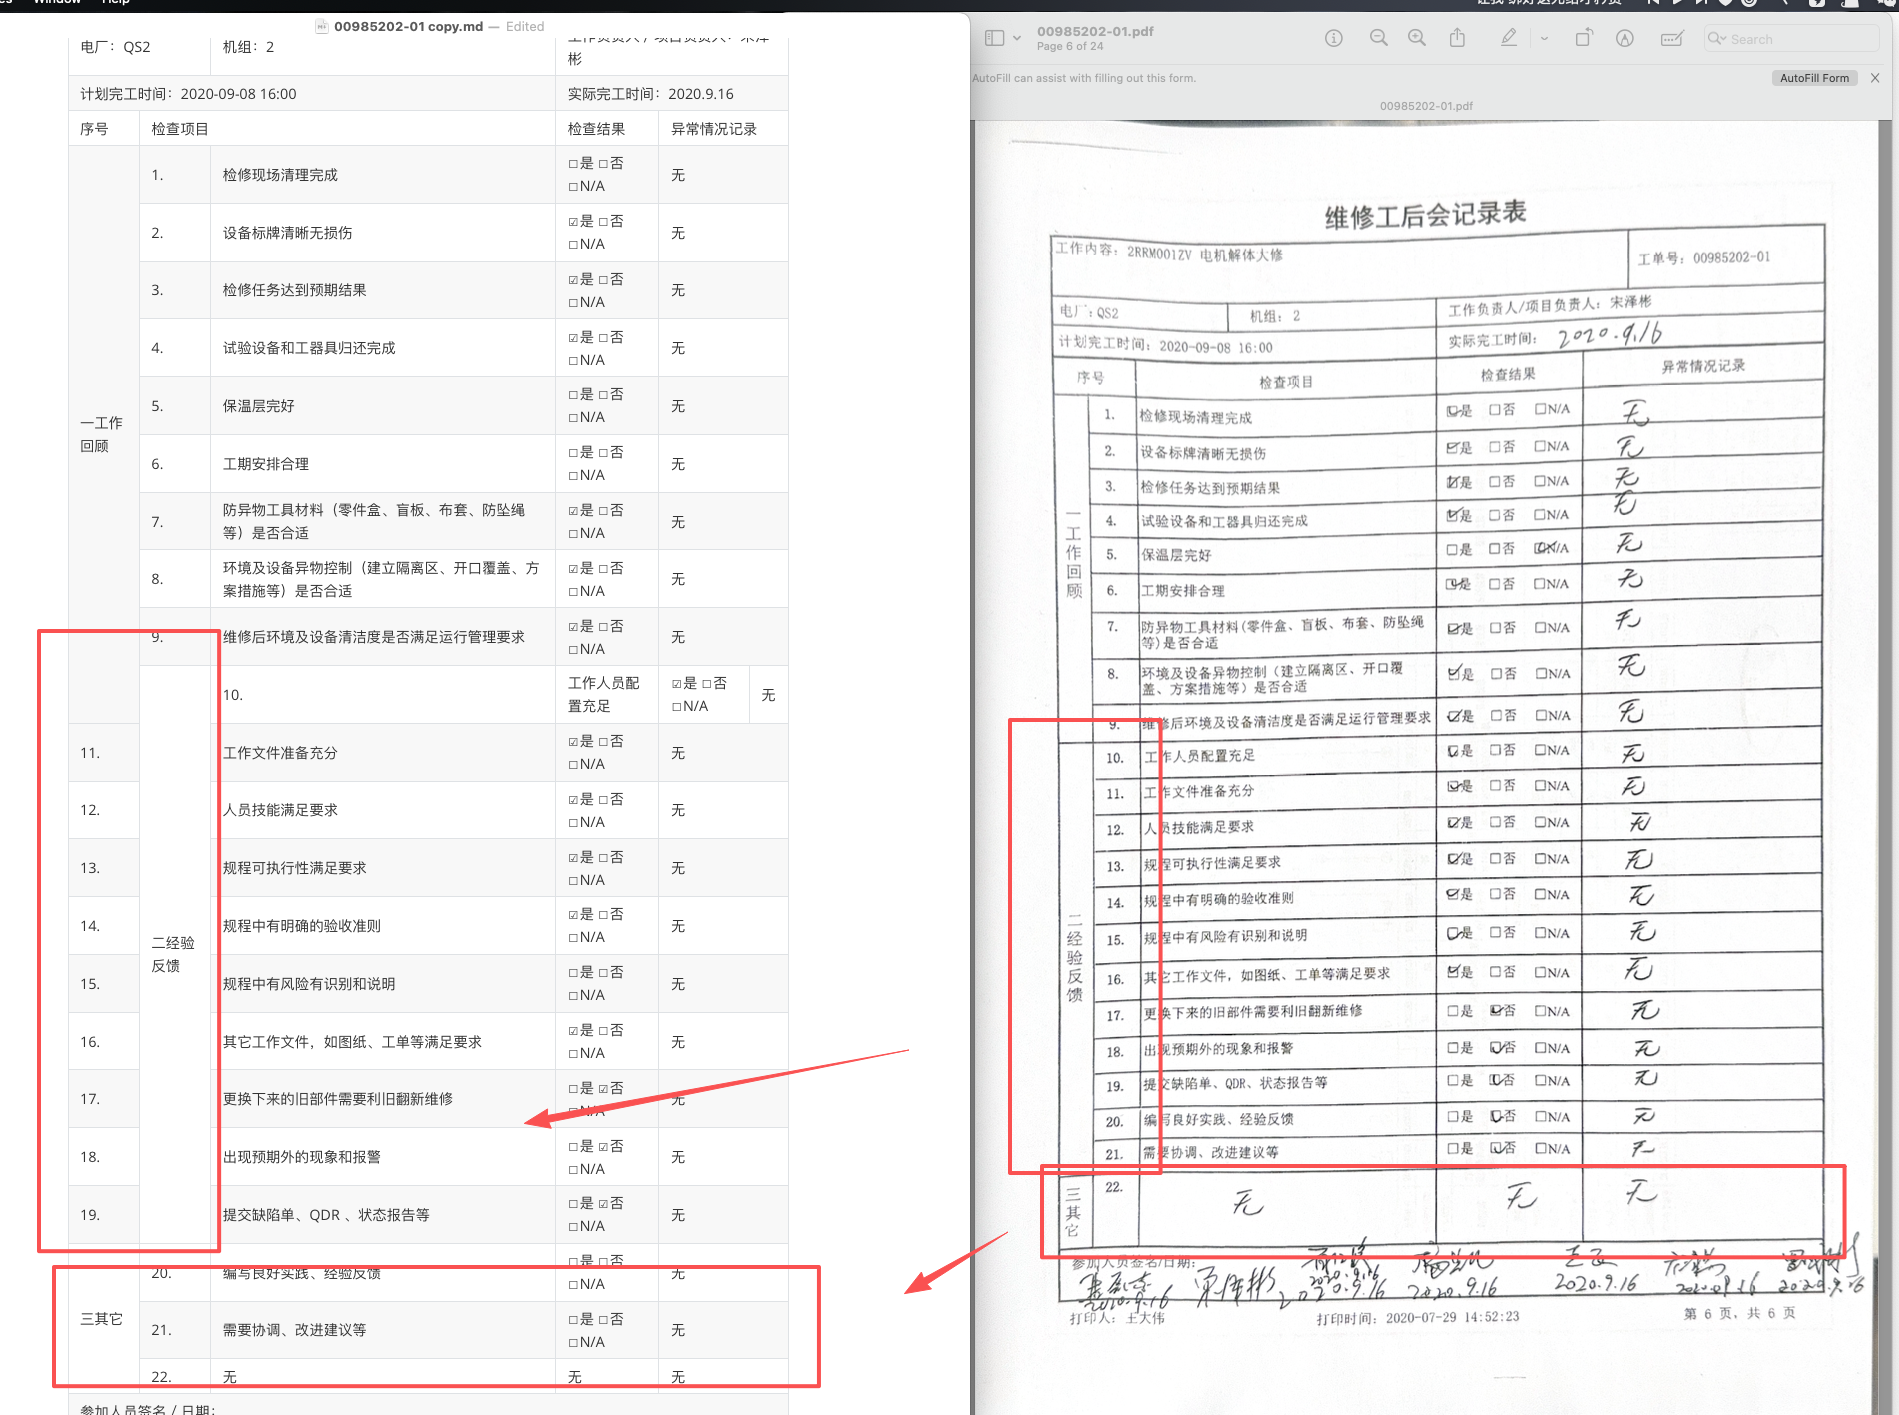 Window Help
00985202-01 copy.md — Edited
电厂：QS2 机组：2 彬
计划完工时间：2020-09-08 16:00 实际完工时间：2020.9.16
序号 检查项目 检查结果 异常情况记录
一工作回顾
1. 检修现场清理完成 ☐是 ☐否 ☐N/A 无
2. 设备标牌清晰无损伤 ☑是 ☐否 ☐N/A 无
3. 检修任务达到预期结果 ☑是 ☐否 ☐N/A 无
4. 试验设备和工器具归还完成 ☑是 ☐否 ☐N/A 无
5. 保温层完好 ☐是 ☐否 ☐N/A 无
6. 工期安排合理 ☐是 ☐否 ☐N/A 无
7. 防异物工具材料（零件盒、盲板、布套、防坠绳
等）是否合适 ☑是 ☐否 ☐N/A 无
8. 环境及设备异物控制（建立隔离区、开口覆盖、方
案措施等）是否合适 ☑是 ☐否 ☐N/A 无
9. 维修后环境及设备清洁度是否满足运行管理要求 ☑是 ☐否 ☐N/A 无
10. 工作人员配置充足 ☑是 ☐否 ☐N/A 无
二经验反馈
11. 工作文件准备充分 ☑是 ☐否 ☐N/A 无
12. 人员技能满足要求 ☑是 ☐否 ☐N/A 无
13. 规程可执行性满足要求 ☑是 ☐否 ☐N/A 无
14. 规程中有明确的验收准则 ☑是 ☐否 ☐N/A 无
15. 规程中有风险有识别和说明 ☐是 ☐否 ☐N/A 无
16. 其它工作文件，如图纸、工单等满足要求 ☑是 ☐否 ☐N/A 无
17. 更换下来的旧部件需要利旧翻新维修 ☐是 ☑否 ☐N/A 无
18. 出现预期外的现象和报警 ☐是 ☑否 ☐N/A 无
19. 提交缺陷单、QDR 、状态报告等 ☐是 ☑否 ☐N/A 无
三其它
20. 编写良好实践、经验反馈 ☐是 ☐否 ☐N/A 无
21. 需要协调、改进建议等 ☐是 ☐否 ☐N/A 无
22. 无 无 无
参加人员签名 / 日期：
00985202-01.pdf
Page 6 of 24
Search
AutoFill can assist with filling out this form.
AutoFill Form
00985202-01.pdf
维修工后会记录表
工作内容：2RRM001ZV 电机解体大修 工单号：00985202-01
电厂：QS2 机组：2 工作负责人/项目负责人：宋泽彬
计划完工时间：2020-09-08 16:00 实际完工时间：2020.9.16
序号 检查项目 检查结果 异常情况记录
一工作回顾
1. 检修现场清理完成 ☑是 ☐否 ☐N/A 无
2. 设备标牌清晰无损伤 ☑是 ☐否 ☐N/A 无
3. 检修任务达到预期结果 ☑是 ☐否 ☐N/A 无
4. 试验设备和工器具归还完成 ☑是 ☐否 ☐N/A 无
5. 保温层完好 ☐是 ☐否 ☑N/A 无
6. 工期安排合理 ☑是 ☐否 ☐N/A 无
7. 防异物工具材料(零件盒、盲板、布套、防坠绳
等)是否合适 ☑是 ☐否 ☐N/A 无
8. 环境及设备异物控制（建立隔离区、开口覆
盖、方案措施等）是否合适 ☑是 ☐否 ☐N/A 无
9. 维修后环境及设备清洁度是否满足运行管理要求 ☑是 ☐否 ☐N/A 无
二经验反馈
10. 工作人员配置充足 ☑是 ☐否 ☐N/A 无
11. 工作文件准备充分 ☑是 ☐否 ☐N/A 无
12. 人员技能满足要求 ☑是 ☐否 ☐N/A 无
13. 规程可执行性满足要求 ☑是 ☐否 ☐N/A 无
14. 规程中有明确的验收准则 ☑是 ☐否 ☐N/A 无
15. 规程中有风险有识别和说明 ☑是 ☐否 ☐N/A 无
16. 其它工作文件，如图纸、工单等满足要求 ☑是 ☐否 ☐N/A 无
17. 更换下来的旧部件需要利旧翻新维修 ☐是 ☑否 ☐N/A 无
18. 出现预期外的现象和报警 ☐是 ☑否 ☐N/A 无
19. 提交缺陷单、QDR、状态报告等 ☐是 ☑否 ☐N/A 无
20. 编写良好实践、经验反馈 ☐是 ☑否 ☐N/A 无
21. 需要协调、改进建议等 ☐是 ☑否 ☐N/A 无
三其它
22. 无 无 无
参加人员签名/日期：
2020.9.16 2020.9.16 2020.9.16 2020.9.16 2020.9.16
打印人：王大伟 打印时间：2020-07-29 14:52:23 第 6 页，共 6 页